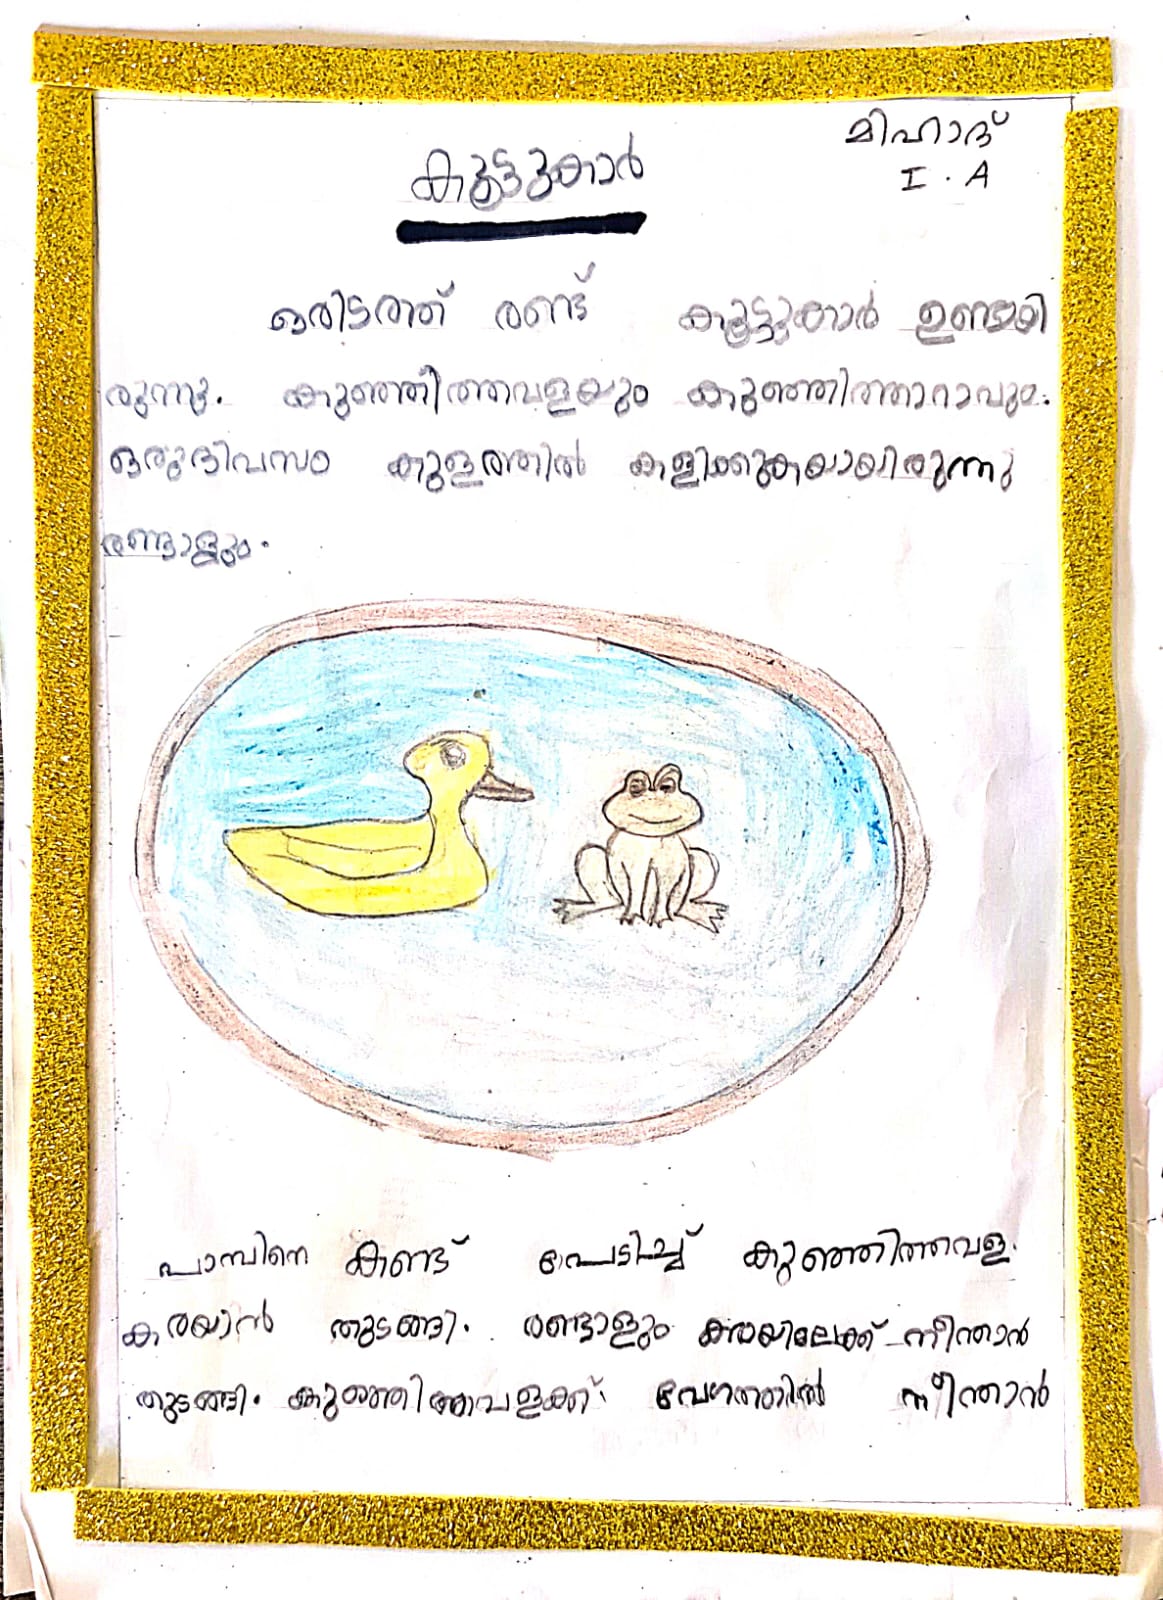 മിഹാദ്
I. A
കൂട്ടുകാർ
ഒരിടത്ത് രണ്ട് കൂട്ടുകാർ ഉണ്ടായി
രുന്നു. കുഞ്ഞിത്തവളയും കുഞ്ഞിത്താറാവും.
ഒരുദിവസം കുളത്തിൽ കളിക്കുകയായിരുന്നു
രണ്ടാളും.
പാമ്പിനെ കണ്ട് പേടിച്ച് കുഞ്ഞിത്തവള.
കരയാൻ തുടങ്ങി. രണ്ടാളും കരയിലേക്ക് നീന്താൻ
തുടങ്ങി. കുഞ്ഞിത്തവളക്ക് വേഗത്തിൽ നീന്താൻ